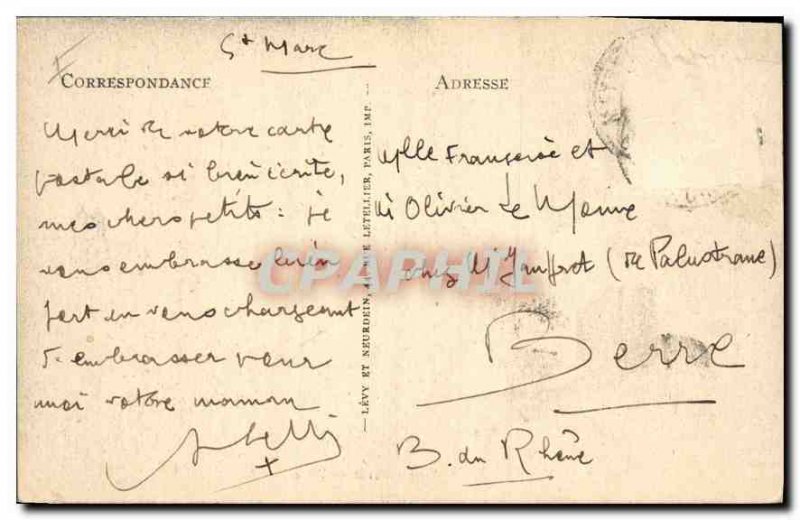 St Marc
CORRESPONDANCE
Merci de votre carte
postale si bien écrite,
mes chers petits : je
vous embrasse bien
fort en vous chargeant
d'embrasser pour
moi votre maman
LÉVY ET NEURDEIN, 44, RUE LETELLIER, PARIS, IMP.
ADRESSE
Mlle Françoise et
Olivier de
chez Mr Jauffret (de Palustrane)
Berre
B. du Rhône
CPAPHIL